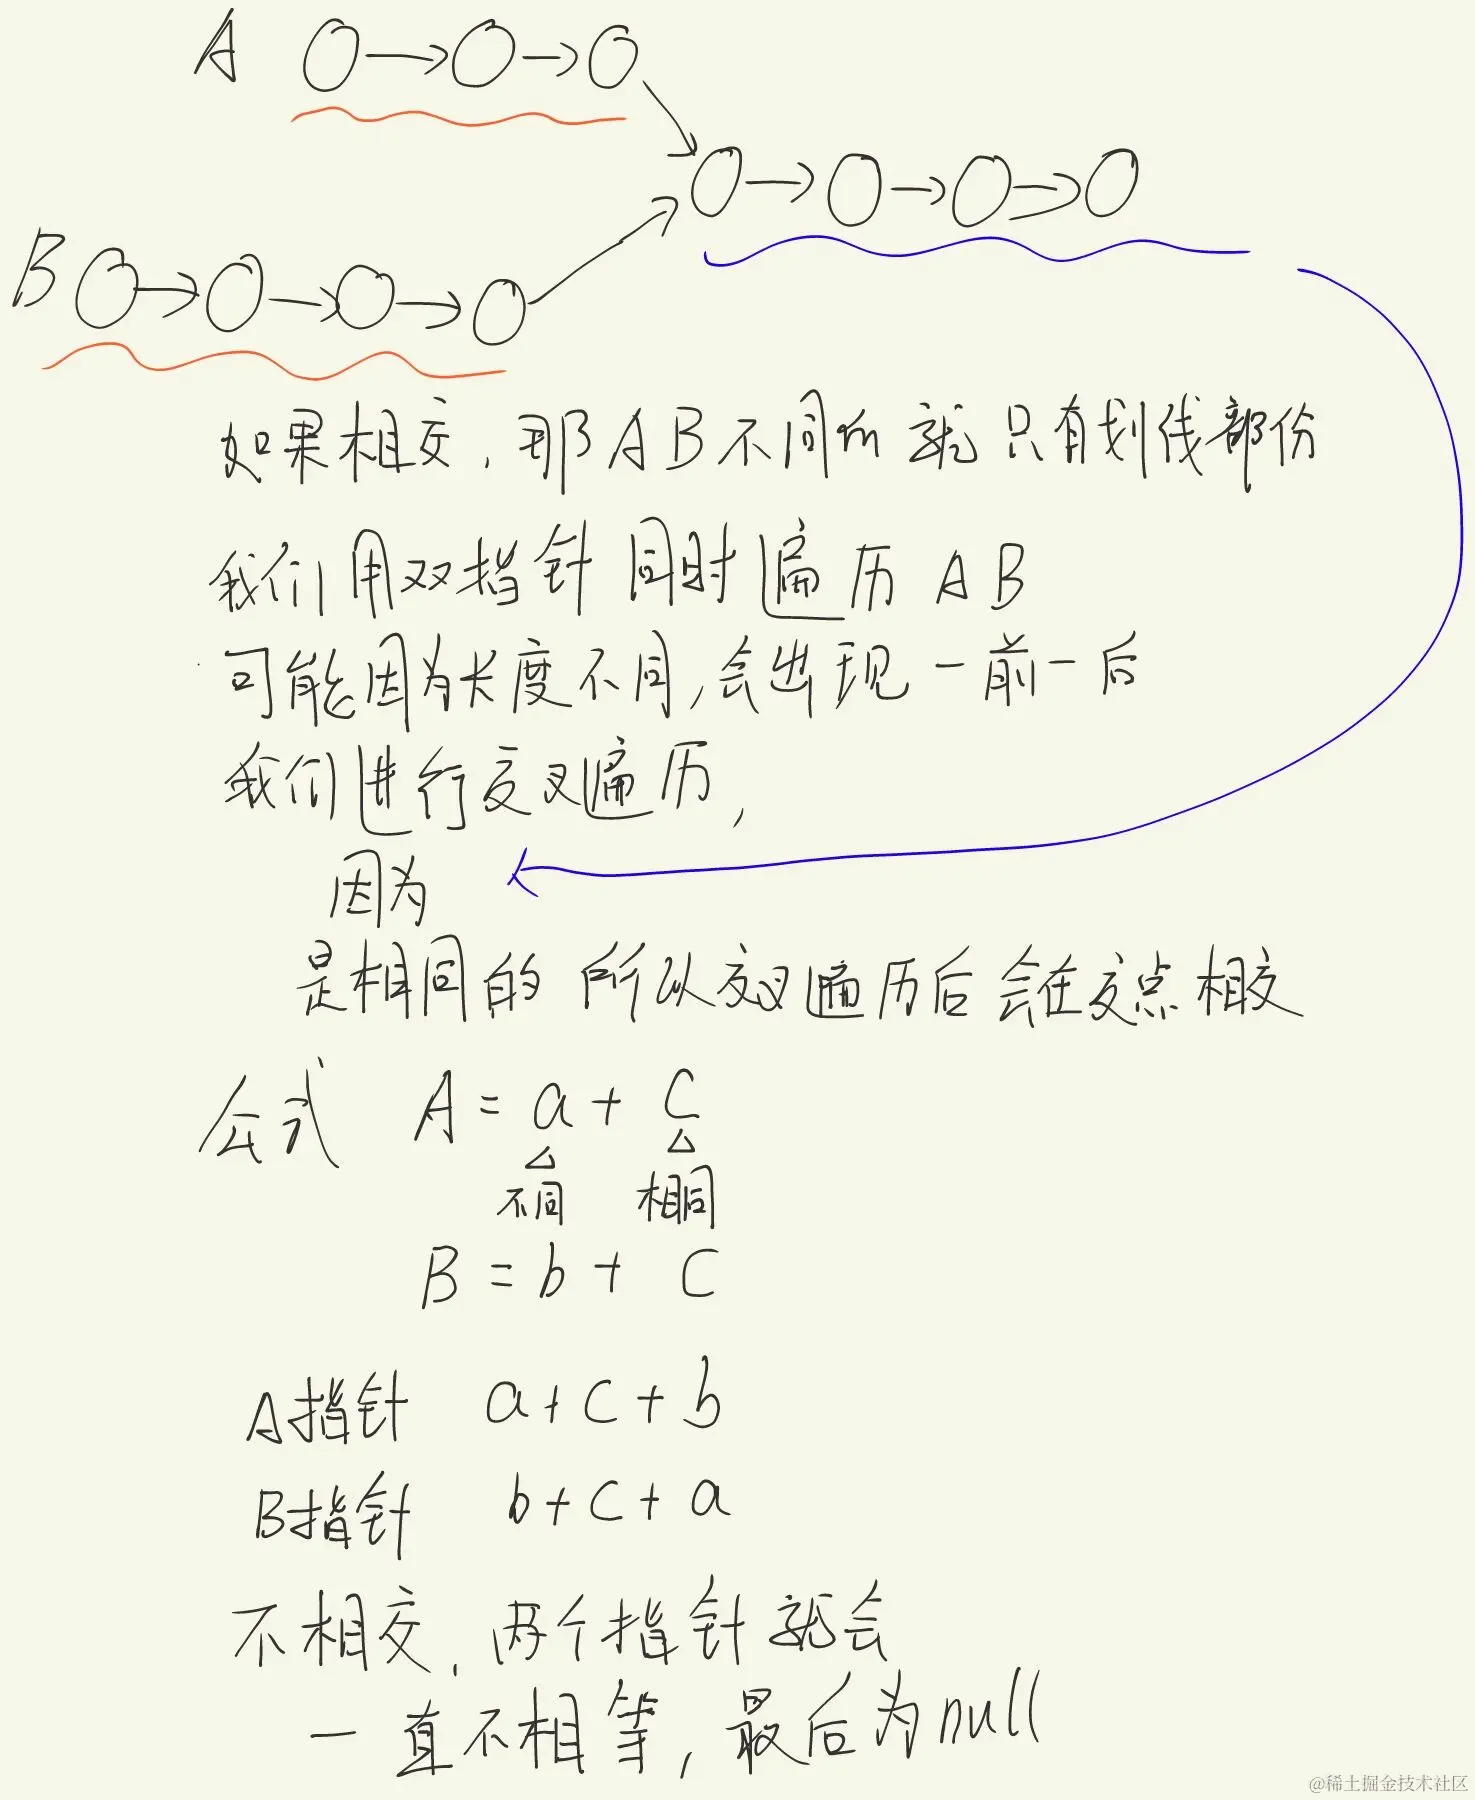 A
B
如果相交,那AB不同的就只有划线部份
我们用双指针同时遍历AB
可能因为长度不同,会出现一前一后
我们进行交叉遍历,
因为
是相同的 所以交叉遍历后会在交点相交
公式 A = a + C
不同 相同
B = b + C
A指针 a + C + b
B指针 b + C + a
不相交,两个指针就会
一直不相等,最后为null
@稀土掘金技术社区